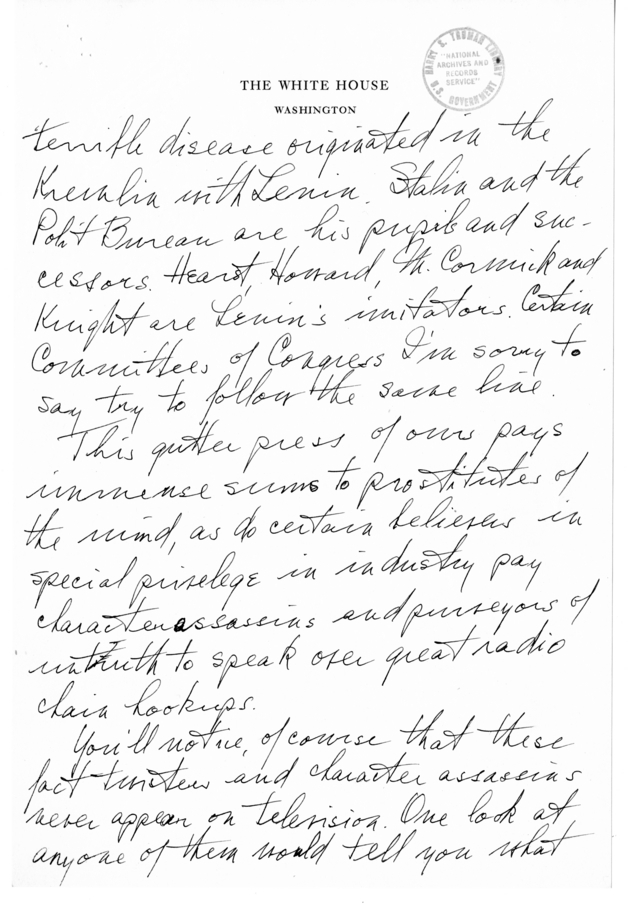 HARRY S. TRUMAN LIBRARY
"NATIONAL
ARCHIVES AND
RECORDS
SERVICE"
U.S. GOVERNMENT
THE WHITE HOUSE
WASHINGTON
terrible disease originated in the
Kremlin with Lenin. Stalin and the
Polit Bureau are his pupils and suc-
cessors. Hearst, Howard, Mc Cormick and
Knight are Lenin's imitators. Certain
Committees of Congress I'm sorry to
say try to follow the same line.
This gutter press of ours pays
immense sums to prostitutes of
the mind, as do certain believers in
special privelege in industry pay
character assassins and purveyors of
untruth to speak over great radio
chain hookups.
You'll notice, of course that these
fact twisters and character assassins
never appear on television. One look at
anyone of them would tell you what